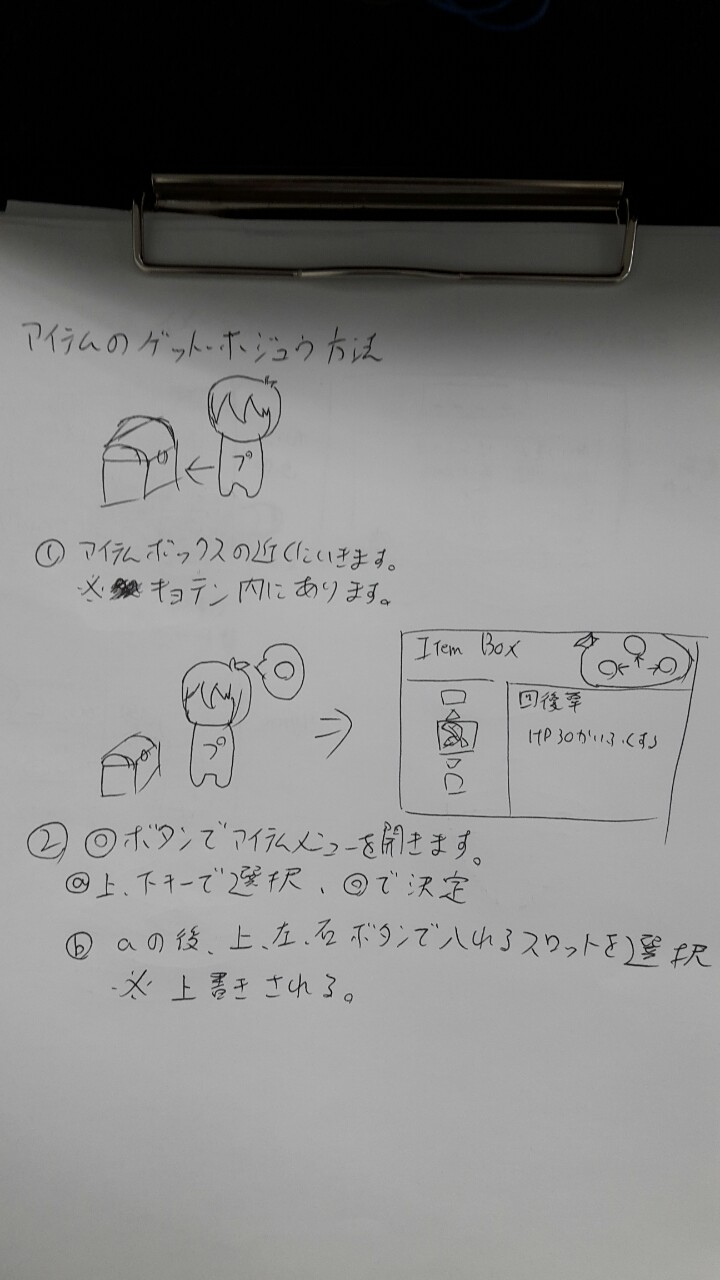 アイテムのゲット・ホジュウ方法
プ
① アイテムボックスの近くにいきます。
※ キョテン内にあります。
プ
Item Box
HP30かいふくする
② ◎ボタンでアイテムメニューを開きます。
ⓐ上、下キーで選択、◎で決定
ⓑ aの後、上、左、右ボタンで入れるスロットを選択
※ 上書きされる。